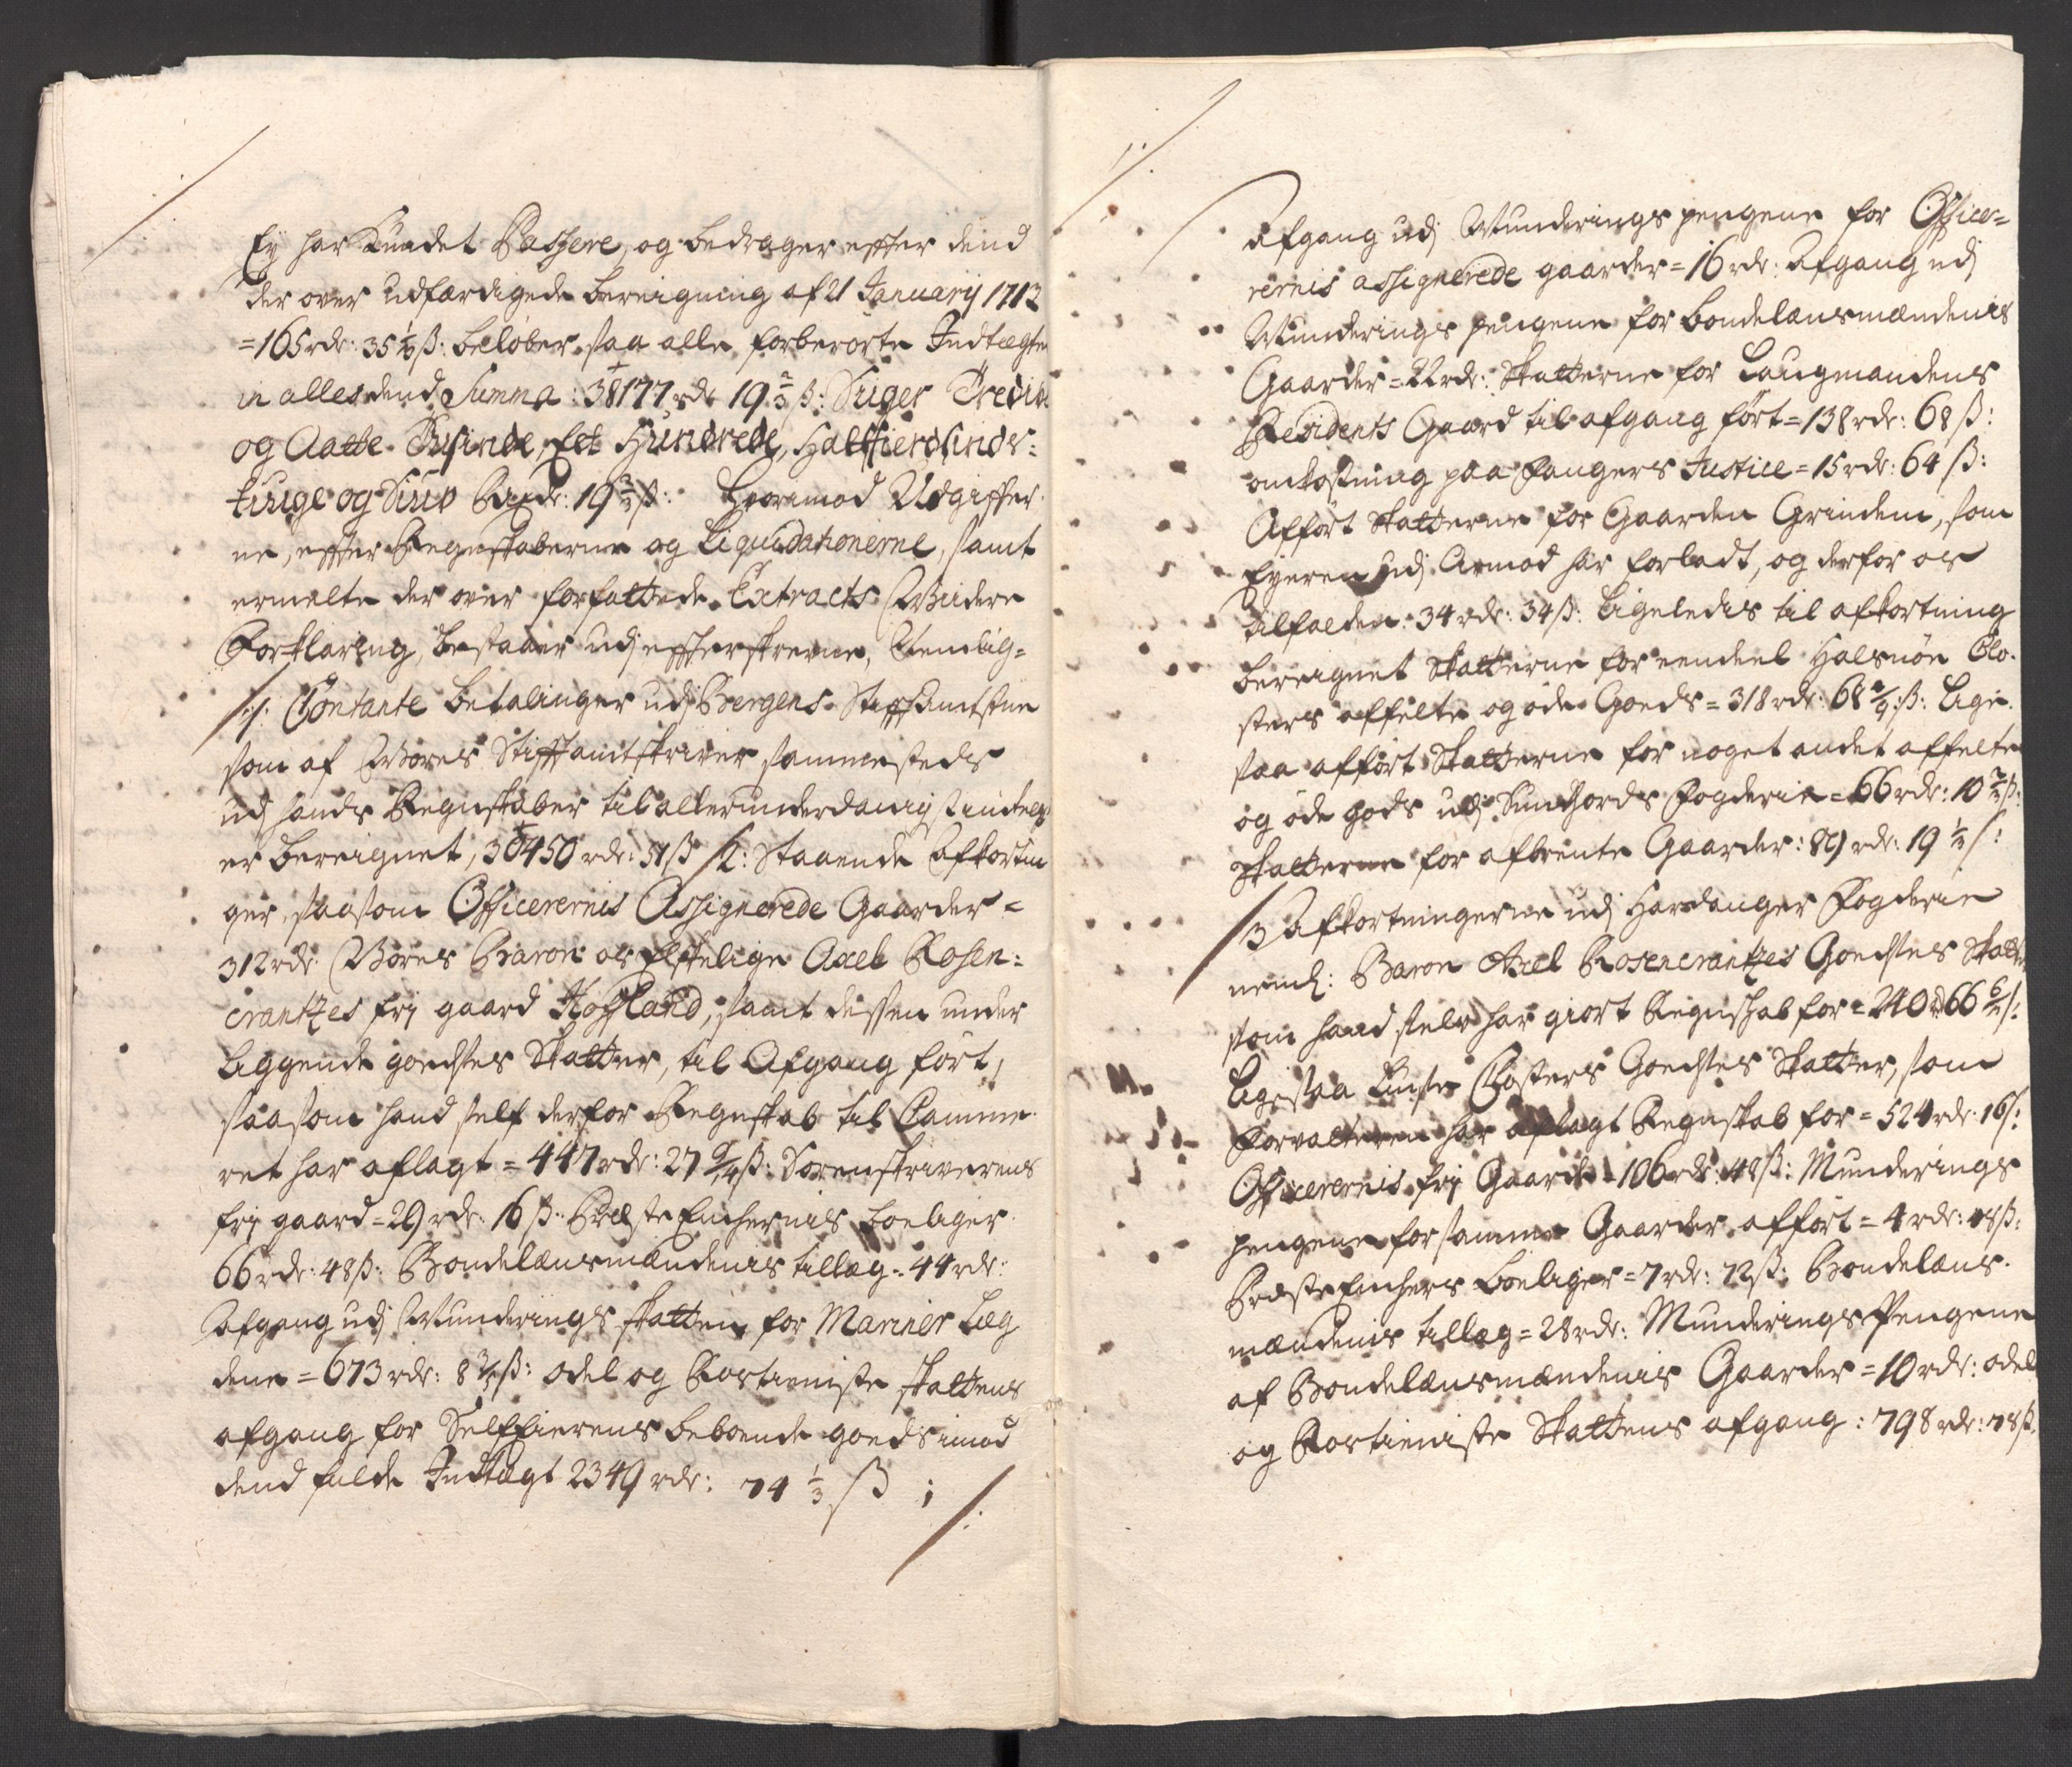 Ey har Kundet Passere, og bedrager effter dend
der over udfærdigede bereigning af 21 Januarij 1712
=165 rdr: 35 1/6 ß: beløber saa alle forberørte Indtægter
in alles dend Summa: 38177 rdr 19 2/3 ß: Siger Tredive
og Aatte Tusinde, Et Hundrede, Halffierdsinds=
tiuge og Siuv Rixdr: 19 2/3 ß: Hvorimod Udgiffter
ne, effter Regnskaberne og Liquidationerne, samt
ermelte der over forfattede Extracts Widere
Forklaring, bestaaer udj effterskrevne, Nemblig=
/1: Contante betalinger udj Bergens Stifftamtstue
som af Wores Stifftamtskriver sammesteds
udj hands Regnskaber til allerunderdanigst indtegt
er bereignet, 30450 rdr: 51 ß /2: Staaende Afkortnin
ger, saasom Officerernis Assignerede Gaarder=
312 rdr: Wores Baron os Elskelige Axel Rosen=
crantzes frj gaard Hoffland, samt dessen under
liggende goedses Skatter, til Afgang ført,
saasom hand self derfor Regnskab til Camme
ret har aflagt = 447 rdr: 27 9/4 ß: Sorenskriverens
frj gaard = 29 rdr: 16 ß: Præste Enchernis boeliger
66 rdr: 48 ß: Bondelænsmændenis tillæg = 44 rdr:
Afgang udj Munderings skatten for Mariner Læg
dene = 673 rdr: 8 3/4 ß: Odel og Rostieniste skattens
afgang for Selffierens beboende goeds imod
dend fulde Indtægt 2349 rdr: 74 1/3 ß ;
Afgang udj Munderings pengene for Office=
rernis assignerede gaarder = 16 rdr: Afgang udj
Munderings pengene for bondelænsmændenis
Gaarder = 22 rdr: Skatterne for Laugmandens
Residents Gaard til afgang ført = 138 rdr: 68 ß:
omkostning paa Fangers Justice = 15 rdr: 64 ß:
Afført Skatterne for Gaarden Grindem, som
Eyeren udj Armod har forladt, og derfor os
tilfalden: 34 rdr: 34 ß: Ligeledis til afkortning
bereignet Skatterne for eendeel Halsnøe Clo
sters affelte og øde Goeds = 318 rdr: 68 4/9 ß: Lige
saa afført Skatterne for noget andet affelte
og øde gods udj Sundhords Fogderie = 66 rdr: 10 2/3 ß:
Skatterne for afbrente Gaarder: 89 rdr: 19 1/2 ß:
/3 Afkortningerne udj Hardanger Fogderie
neml: Baron Axel Rosencrantzes Goedses Skatter
som hand selv har giort Regnskab for = 240 rdr 66 6/7 ß:
Ligesaa Lyse Closters Goedses Skatter, som
Forvalteren har aflagt Regnskab for = 524 rdr: 16 ß:
Officerernis frj Gaarde = 106 rdr: 48 ß: Munderings
pengene for samme Gaarder afført = 4 rdr: 48 ß:
Præste Enchers boeliger = 7 rdr: 72 ß: Bondelæns
mændenis tillæg = 28 rdr: Munderings Pengene
af Bondelænsmændenis Gaarder = 10 rdr: Odel
og Rostieniste Skattens afgang: 798 rdr: 78 ß.